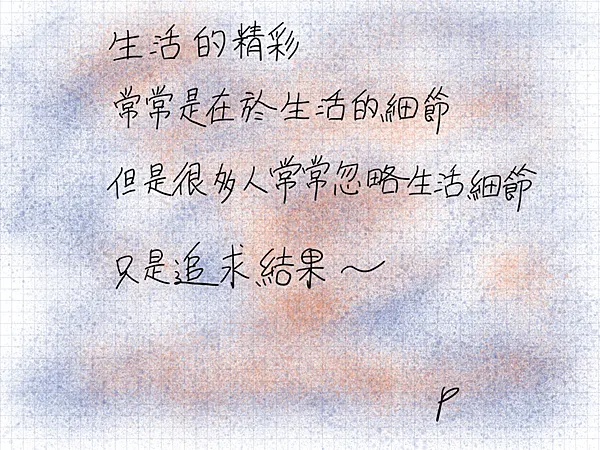 生活的精彩
常常是在於生活的細節
但是很多人常常忽略生活細節
只是追求結果～
p